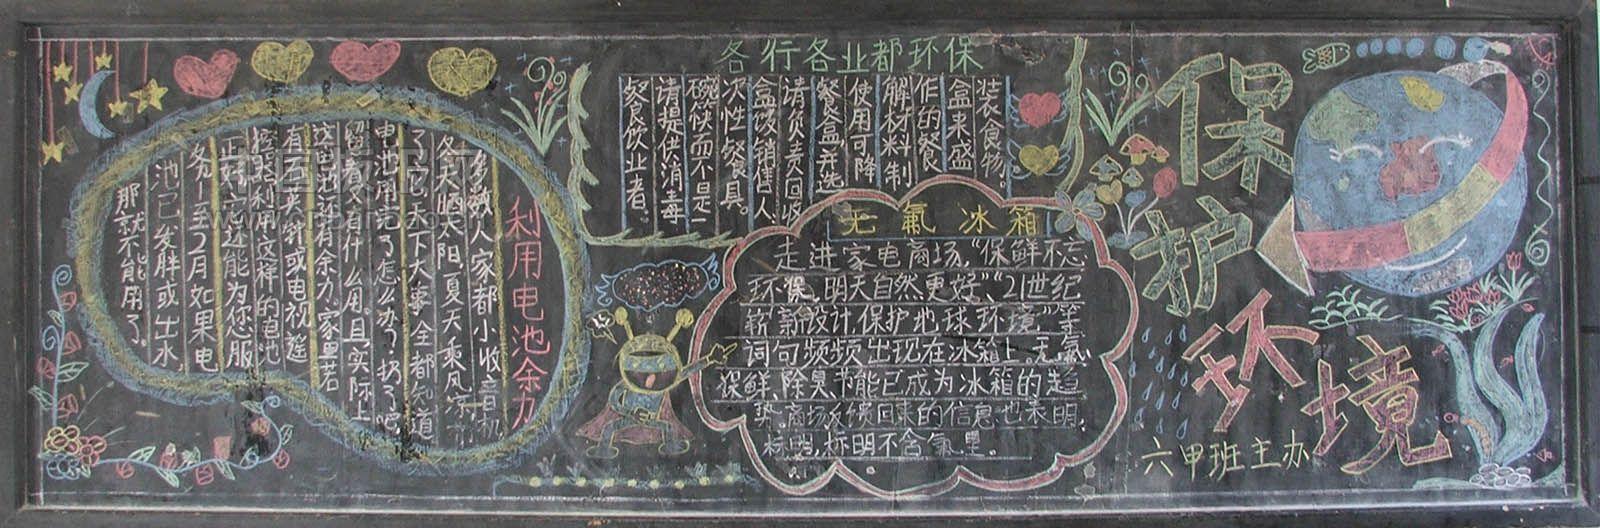 保护环境
六甲班主办
各行各业都环保
餐饮业者。
请提供消毒
碗筷而不是一
次性餐具。
盒饭销售人
请负责回收
餐盒,并选
使用可降
解材料制
作的餐
盒来盛
装食物。
无氟冰箱
走进家电商场,“保鲜不忘
环保,明天自然更好”、“21世纪
新设计,保护地球环境”等
词句频频出现在冰箱上。无氟
保鲜、除臭、节能已成为冰箱的趋
势。商场反馈回来的信息也表明,
标明,标明不含氟里。
利用电池余力
多数人家都小收音机
冬天晒太阳,夏天乘风凉,
了它天下大事全都知道
电池用完了怎么办?扔了吧,
留着又有什么用。且实际上
还有余力,家里若
有石英钟或电视遥
控器利用这样的电池
正好,它还能为您服
务1至2月如果电
池已发胖或出水,
那就不能用了。